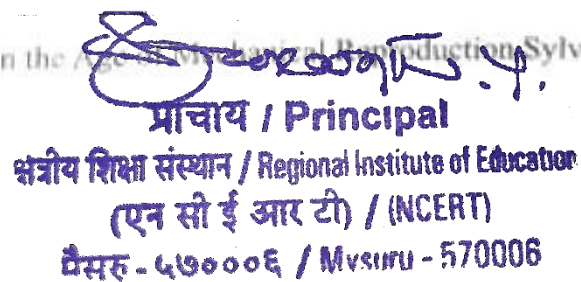 n the Age of Mechanical Reproduction Sylv
प्राचार्य / Principal
क्षेत्रीय शिक्षा संस्थान / Regional Institute of Education
(एन सी ई आर टी) / (NCERT)
मैसूरु - ५७०००६ / Mysuru - 570006